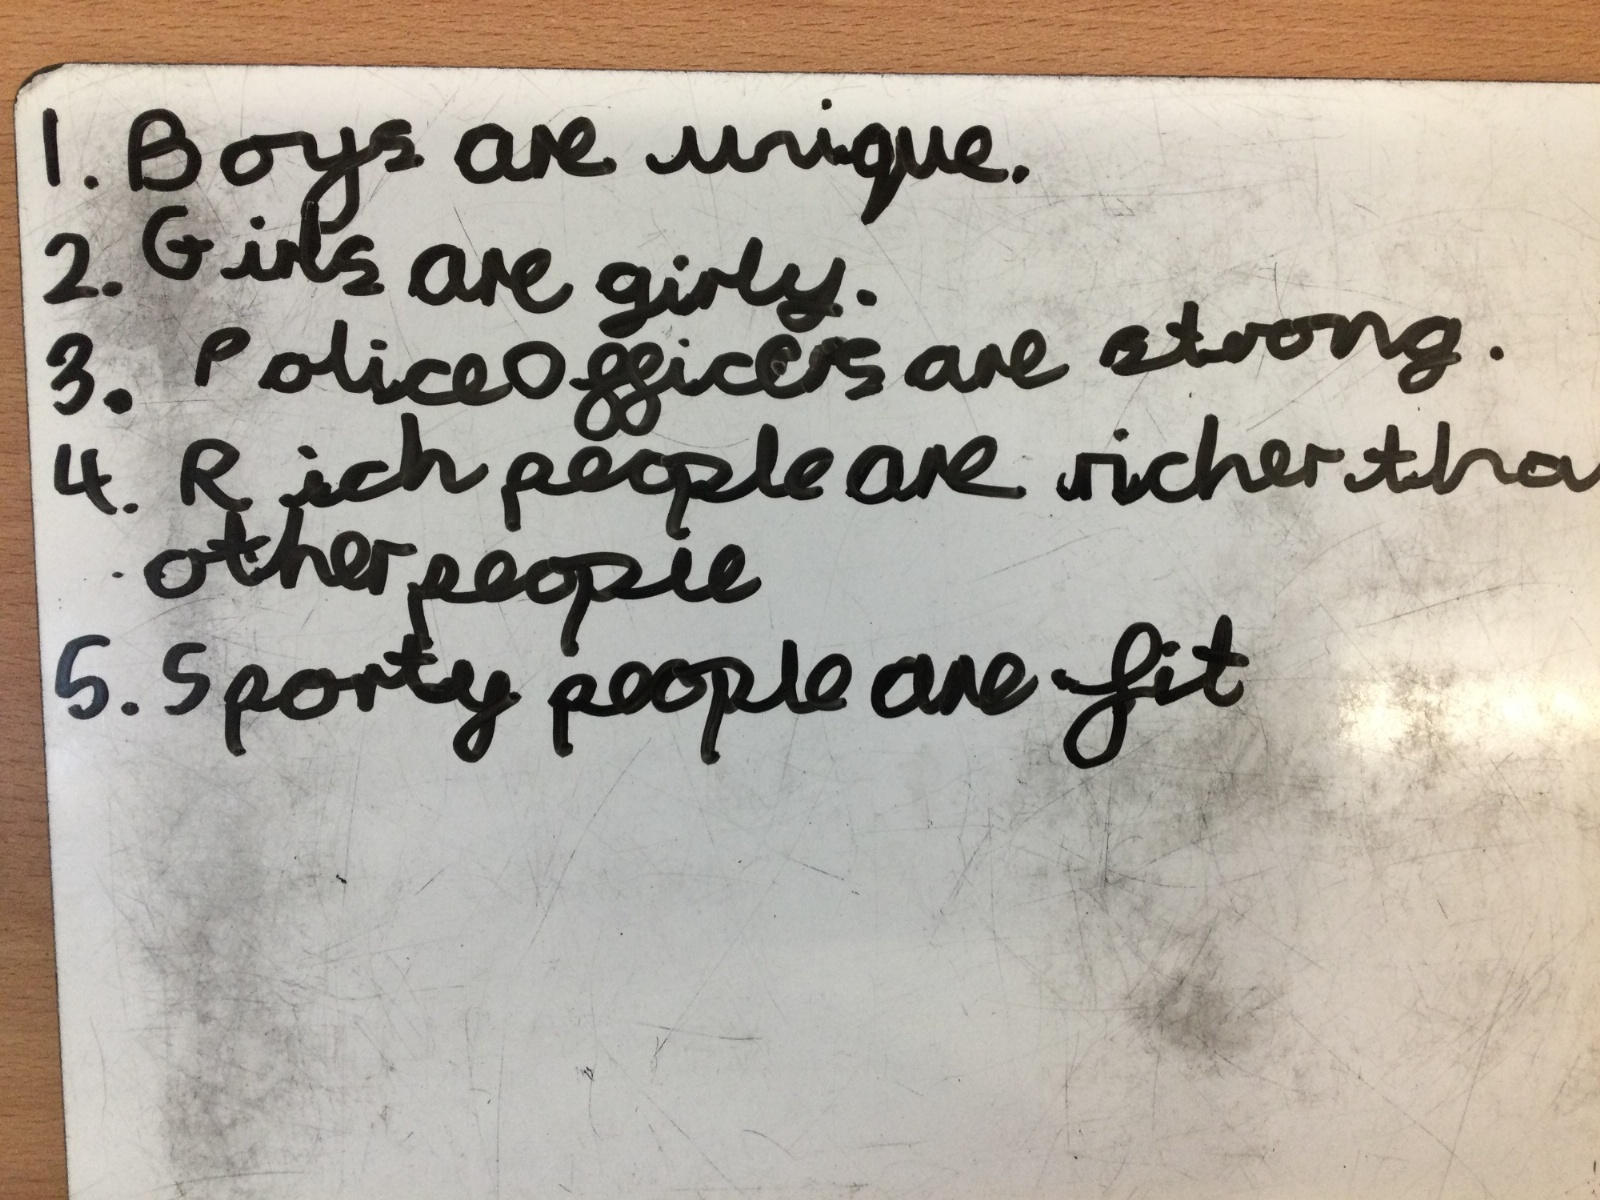 1. Boys are unique.
2. Girls are girly.
3. Police Officers are strong.
4. Rich people are richer tha
other people
5. Sporty people are fit